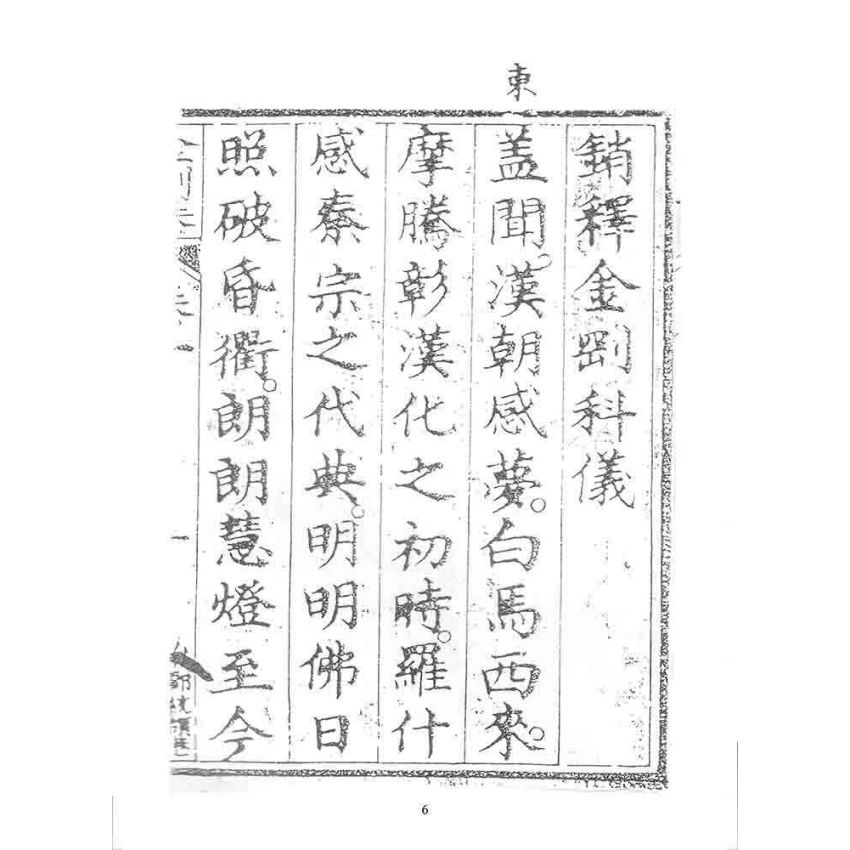 東
銷釋金剛科儀
蓋聞。漢朝感夢。白馬西來。
摩騰彰漢化之初時。羅什
感秦宗之代典。明明佛日
照破昏衢。朗朗慧燈至今
6